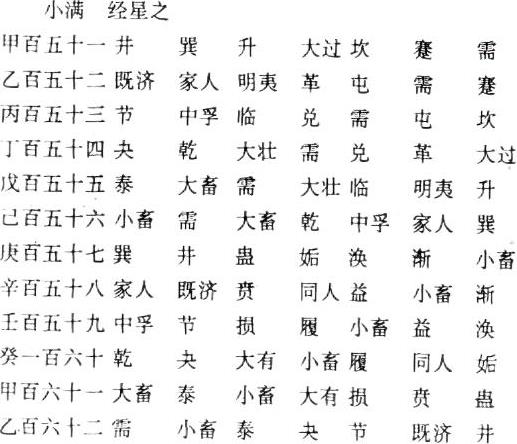 小满 经星之
甲百五十一 井 巽 升 大过 坎 蹇 需
乙百五十二 既济 家人 明夷 革 屯 需 蹇
丙百五十三 节 中孚 临 兑 需 屯 坎
丁百五十四 夬 乾 大壮 需 兑 革 大过
戊百五十五 泰 大畜 需 大壮 临 明夷 升
己百五十六 小畜 需 大畜 乾 中孚 家人 巽
庚百五十七 巽 井 蛊 姤 涣 渐 小畜
辛百五十八 家人 既济 贲 同人 益 小畜 渐
壬百五十九 中孚 节 损 履 小畜 益 涣
癸一百六十 乾 夬 大有 小畜 履 同人 姤
甲百六十一 大畜 泰 小畜 大有 损 贲 蛊
乙百六十二 需 小畜 泰 夬 节 既济 井